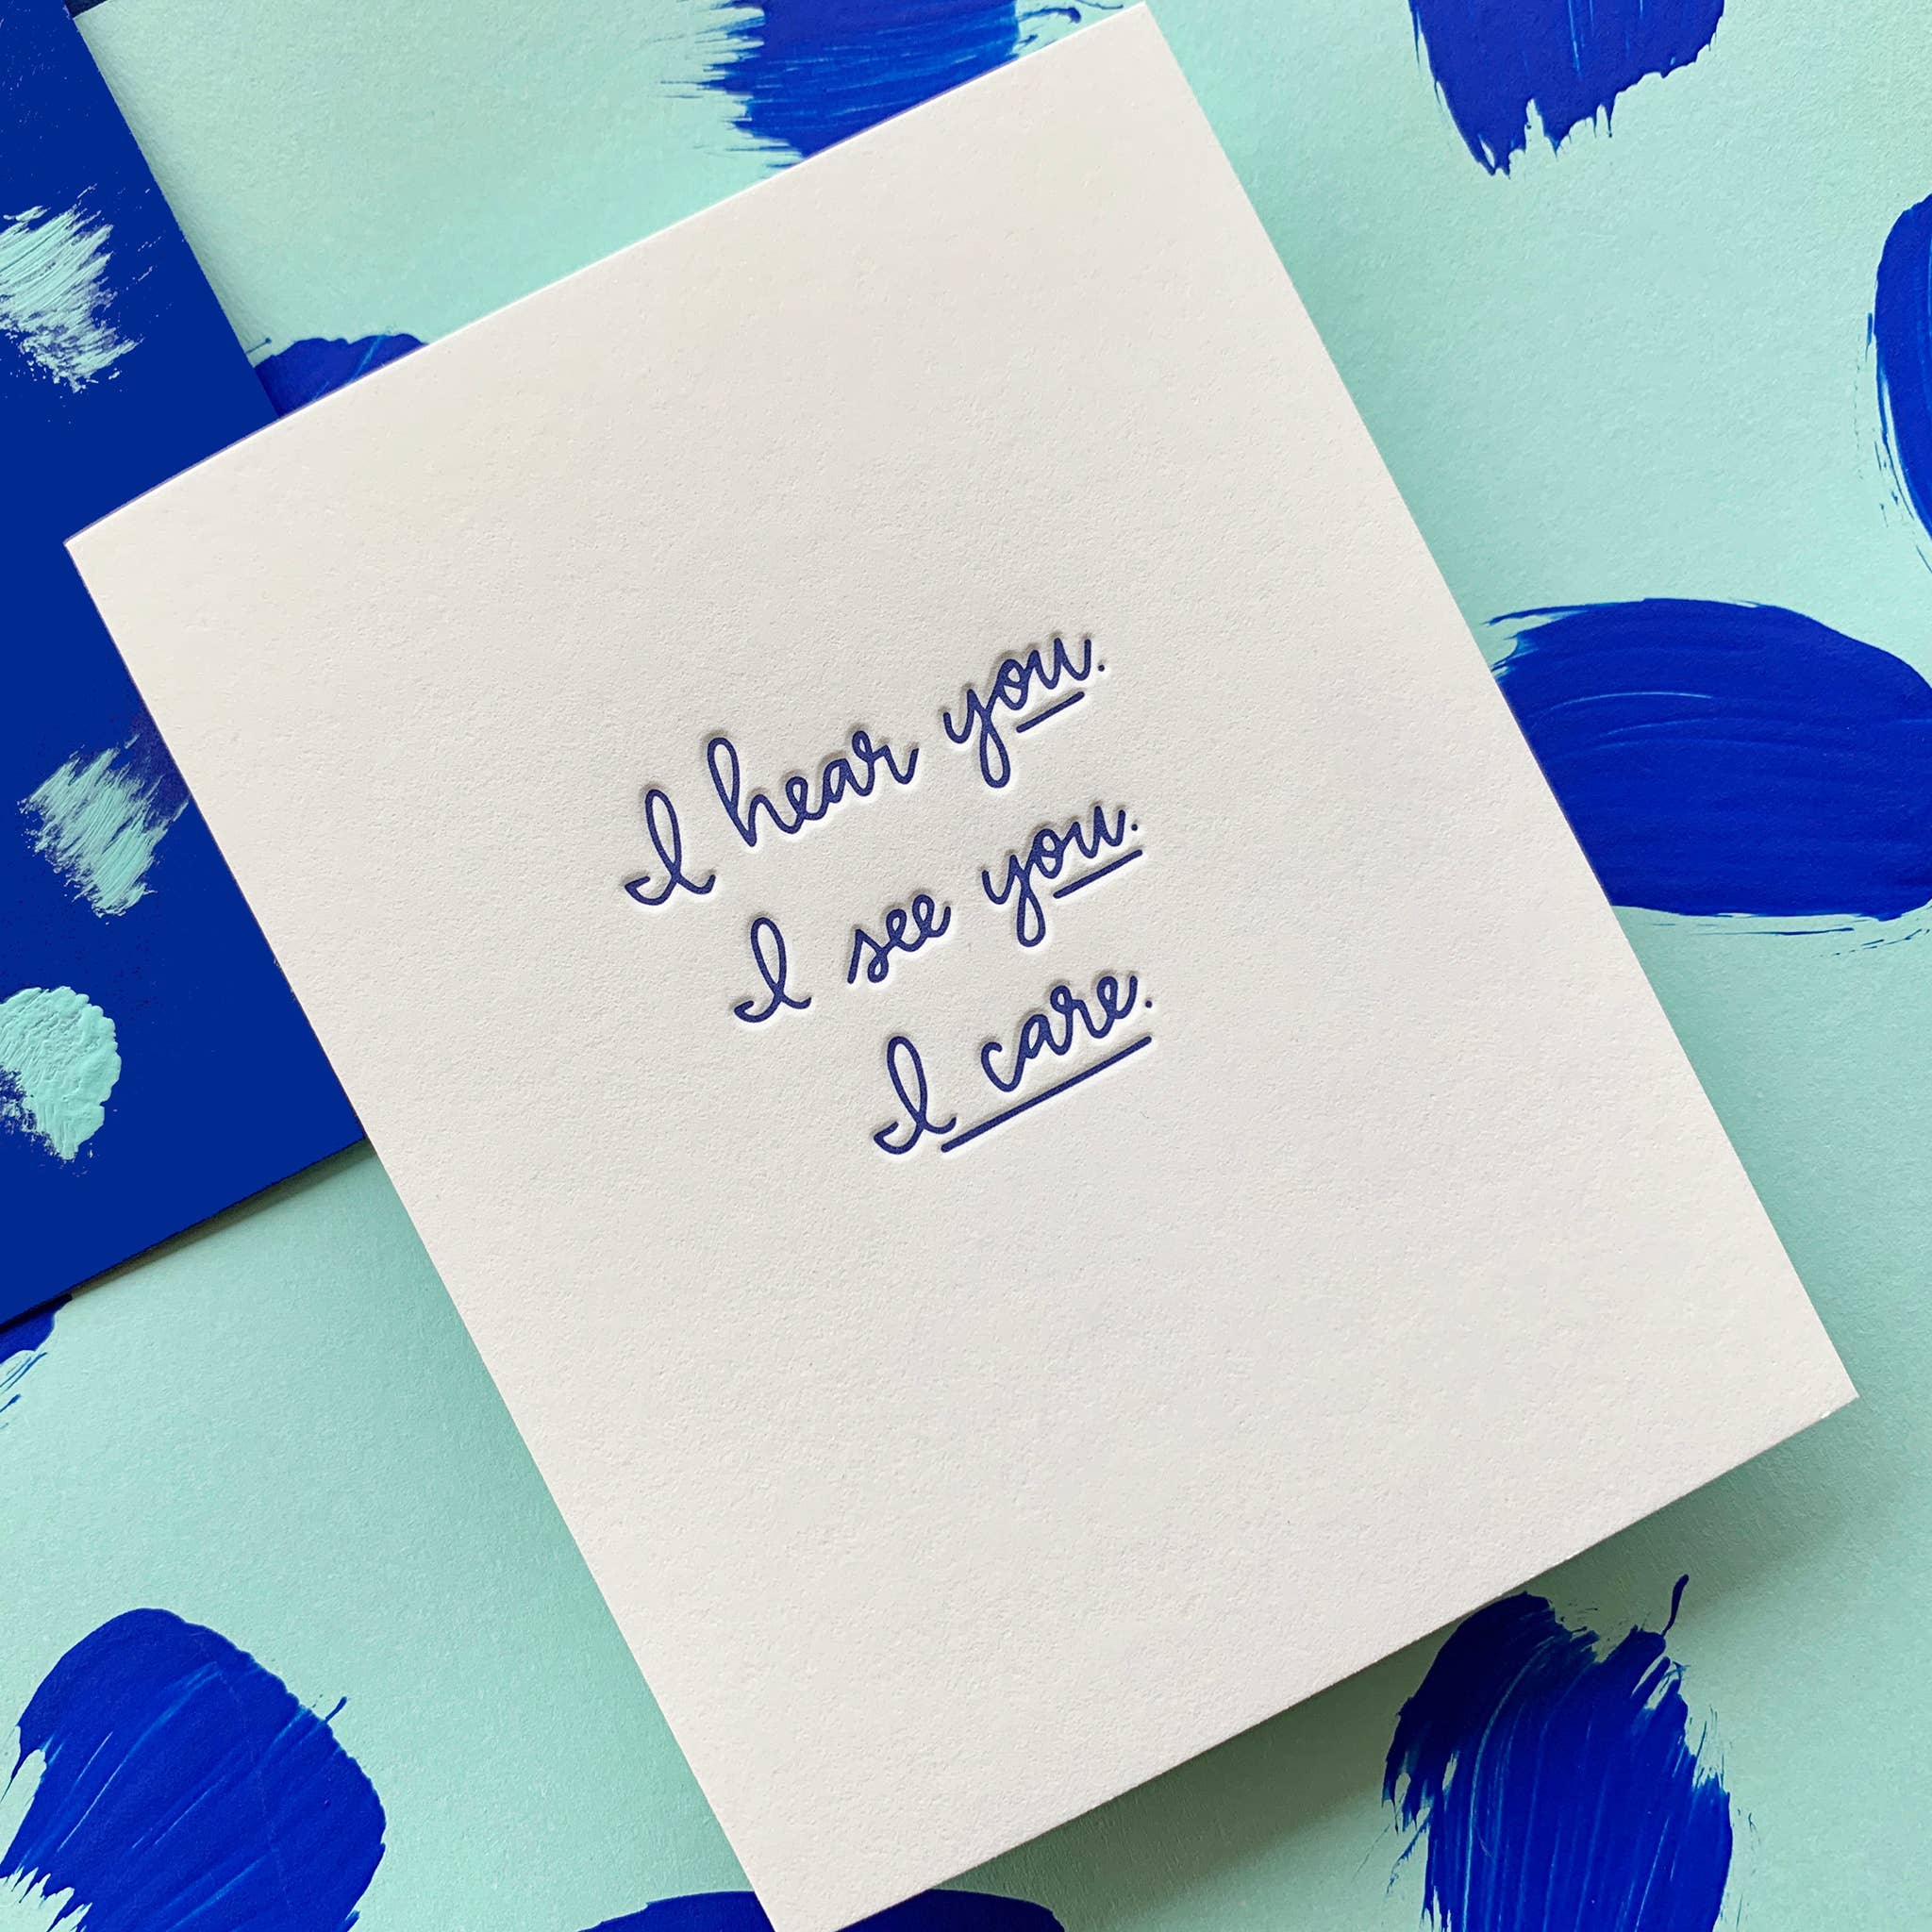 I hear you.
I see you.
I care.